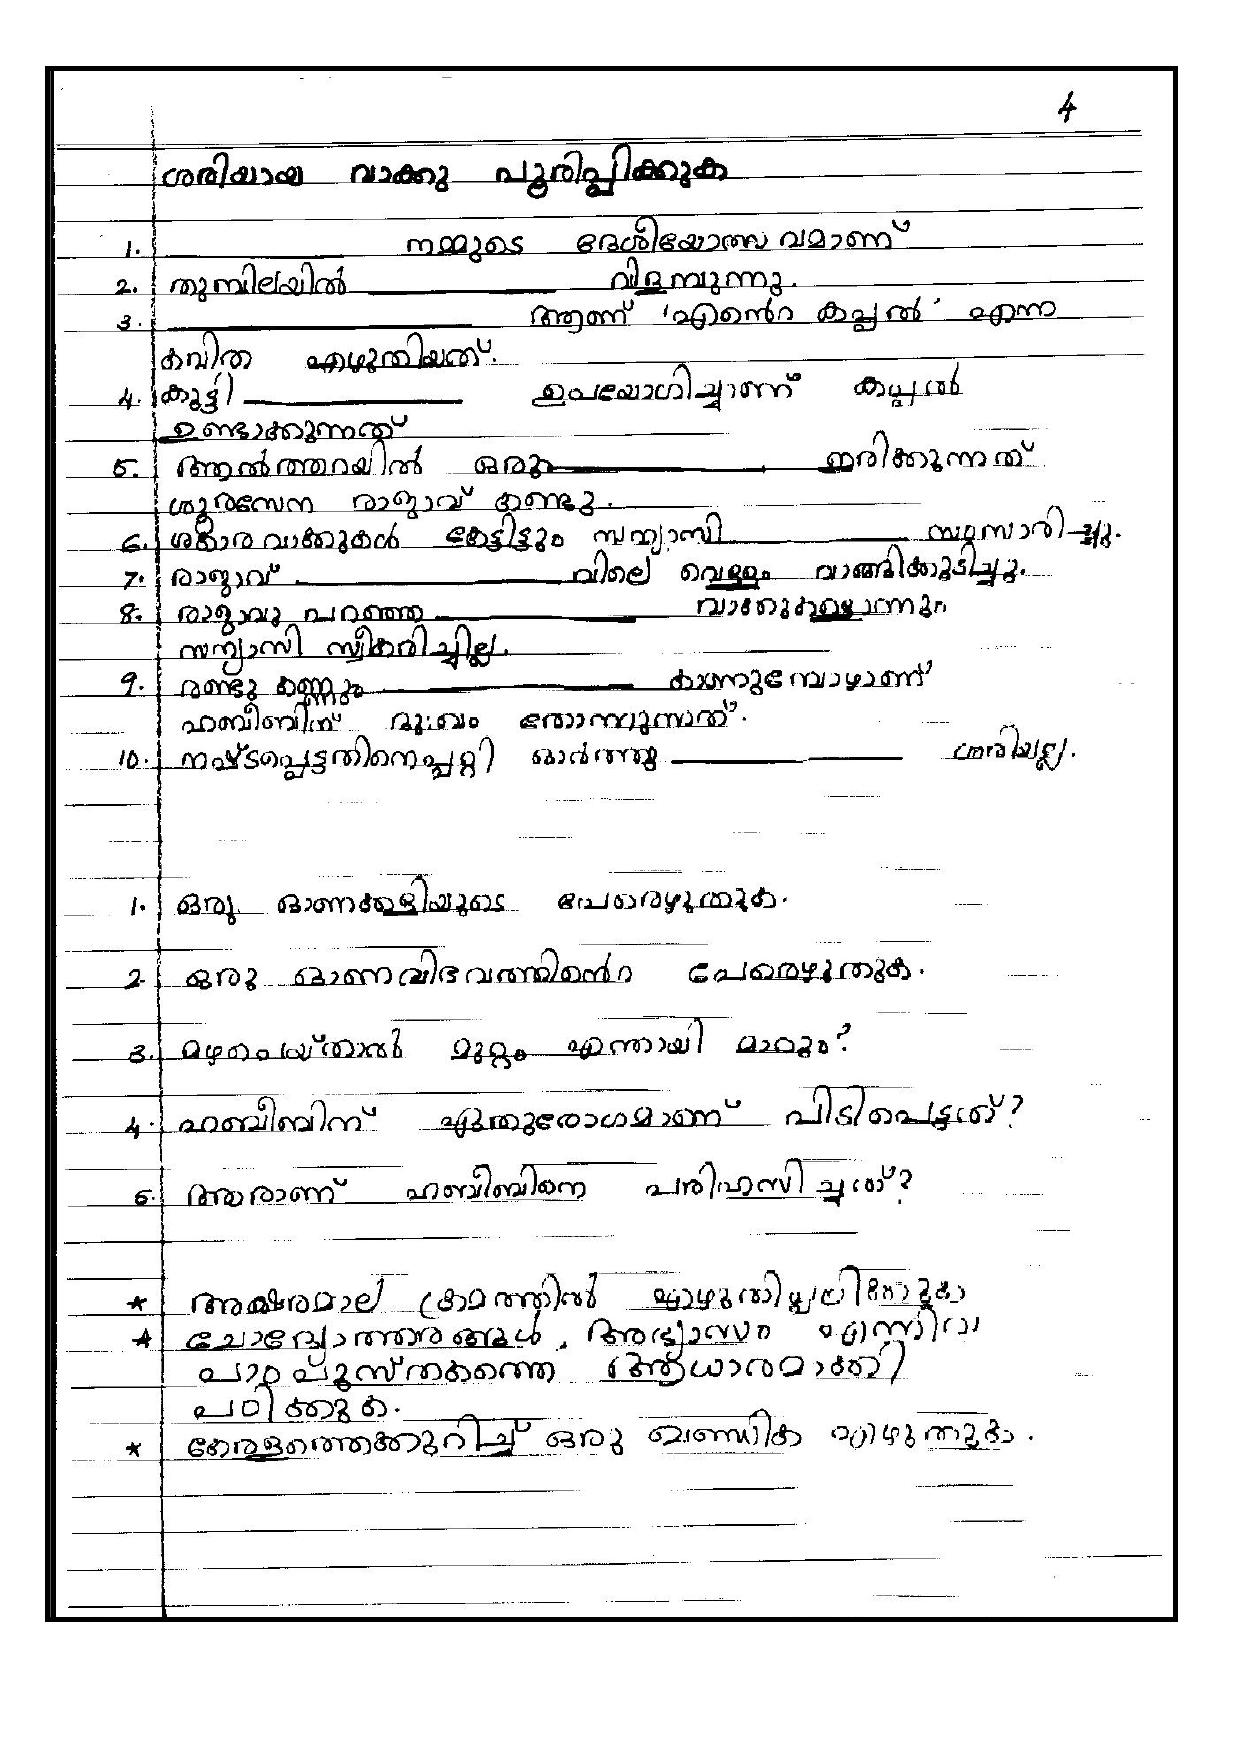 4
ശരിയായ വാക്കു പൂരിപ്പിക്കുക
1. ___________ നമ്മുടെ ദേശീയോത്സവമാണ്
2. തുമ്പിലയിൽ ___________ വിളമ്പുന്നു.
3. ___________ ആണ് 'എൻെറ കപ്പൽ' എന്ന
കവിത എഴുതിയത്.
4. കുട്ടി ___________ ഉപയോഗിച്ചാണ് കപ്പൽ
ഉണ്ടാക്കുന്നത്
5. ആൽത്തറയിൽ ഒരു ___________ ഇരിക്കുന്നത്
ശൂരസേന രാജാവ് കണ്ടു.
6. ശകാരവാക്കുകൾ കേട്ടിട്ടും സന്യാസി ___________ സംസാരിച്ചു.
7. രാജാവ് ___________ വിലെ വെള്ളം വാങ്ങിക്കുടിച്ചു.
8. രാജാവു പറഞ്ഞ ___________ വാക്കുകളൊന്നും
സന്യാസി സ്വീകരിച്ചില്ല.
9. രണ്ടു കണ്ണും ___________ കാണുമ്പോഴാണ്
ഹബീബിന് ദുഃഖം തോന്നുന്നത്.
10. നഷ്ടപ്പെട്ടതിനെപ്പറ്റി ഓർത്തു ___________ ശരിയല്ല.
1. ഒരു ഓണക്കളിയുടെ പേരെഴുതുക.
2. ഒരു ഓണവിഭവത്തിൻെറ പേരെഴുതുക.
3. മഴപെയ്താൽ മുറ്റം എന്തായി മാറും?
4. ഹബീബിന് ഏതുരോഗമാണ് പിടിപെട്ടത്?
5. ആരാണ് ഹബീബിനെ പരിഹസിച്ചത്?
* അക്ഷരമാല ക്രമത്തിൽ എഴുതിപ്പഠിക്കുക
* ചോദ്യോത്തരങ്ങൾ, അഭ്യാസം എന്നിവ
പാഠപുസ്തകത്തെ ആധാരമാക്കി
പഠിക്കുക.
* കേരളത്തെക്കുറിച്ച് ഒരു ഖണ്ഡിക എഴുതുക.